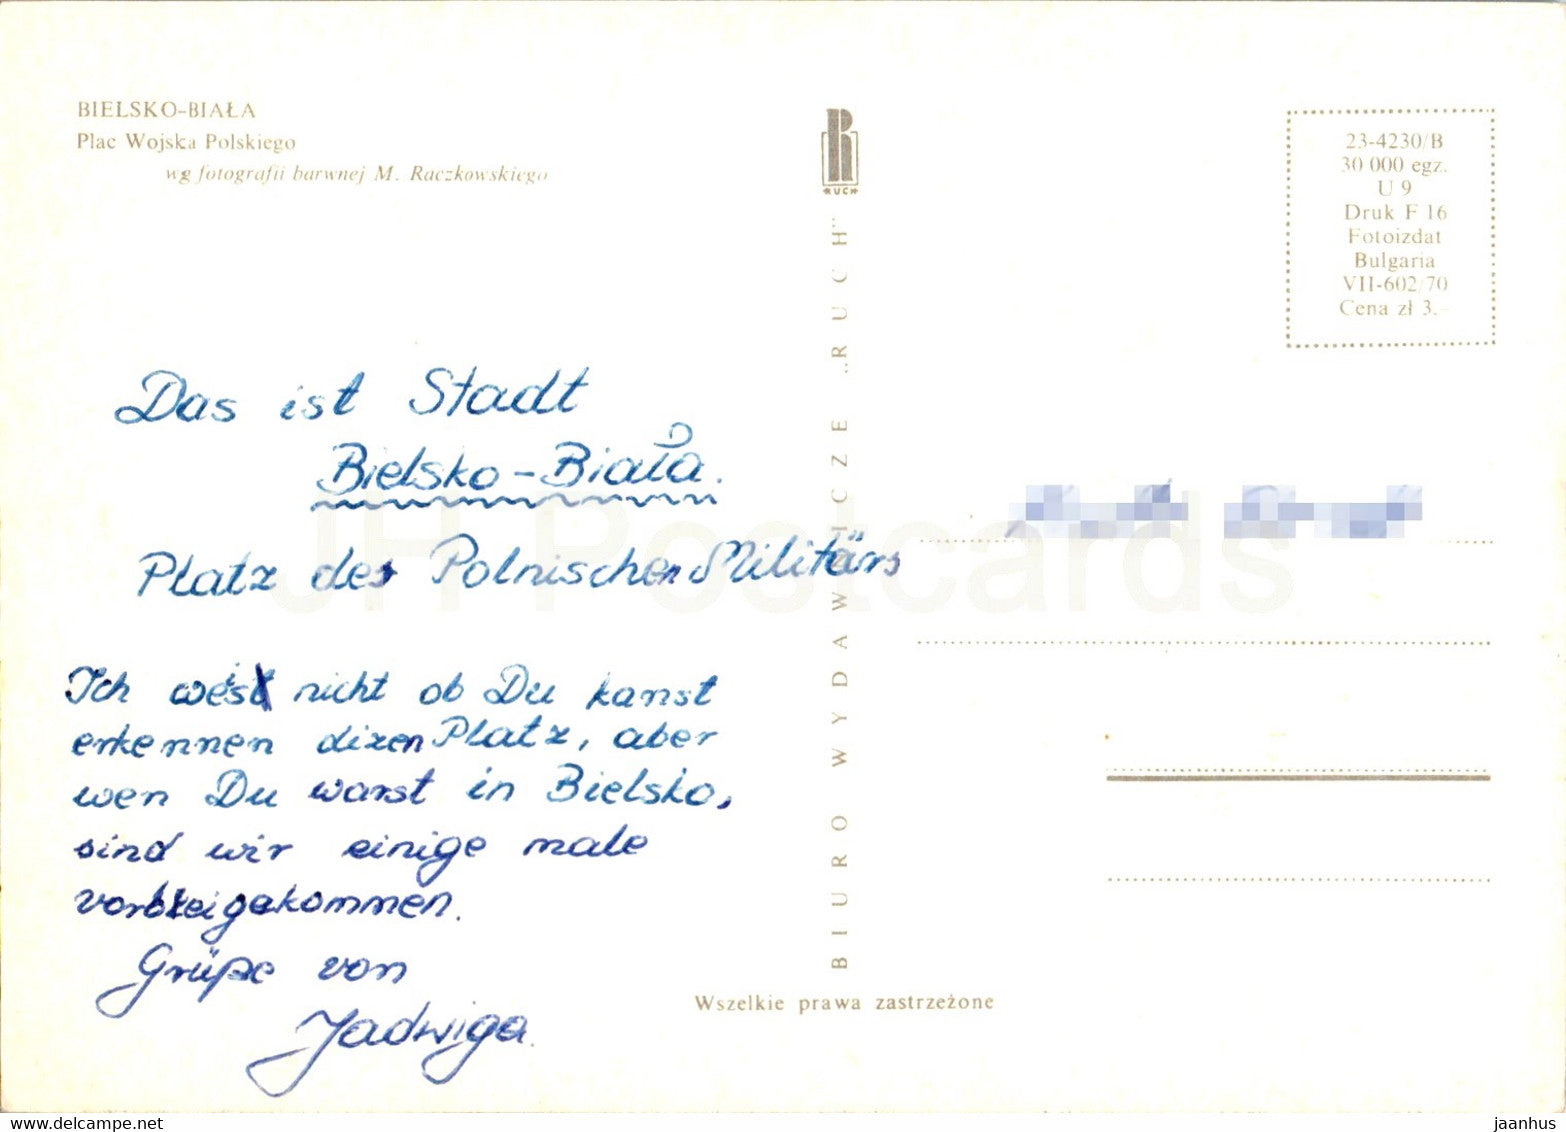 BIELSKO-BIAŁA
Plac Wojska Polskiego
wg fotografii barwnej M. Raczkowskiego
RUCH
BIURO WYDAWNICZE „RUCH”
23-4230/B
30 000 egz.
U 9
Druk F 16
Fotoizdat
Bulgaria
VII-602/70
Cena zł 3.–
Das ist Stadt
Bielsko-Biała.
Platz des Polnischen Militärs
Ich weis nicht ob Du kanst
erkennen dizen Platz, aber
wen Du warst in Bielsko,
sind wir einige male
vorbeigekommen.
Grüße von
Jadwiga.
Wszelkie prawa zastrzeżone
JH Postcards
jaanhus